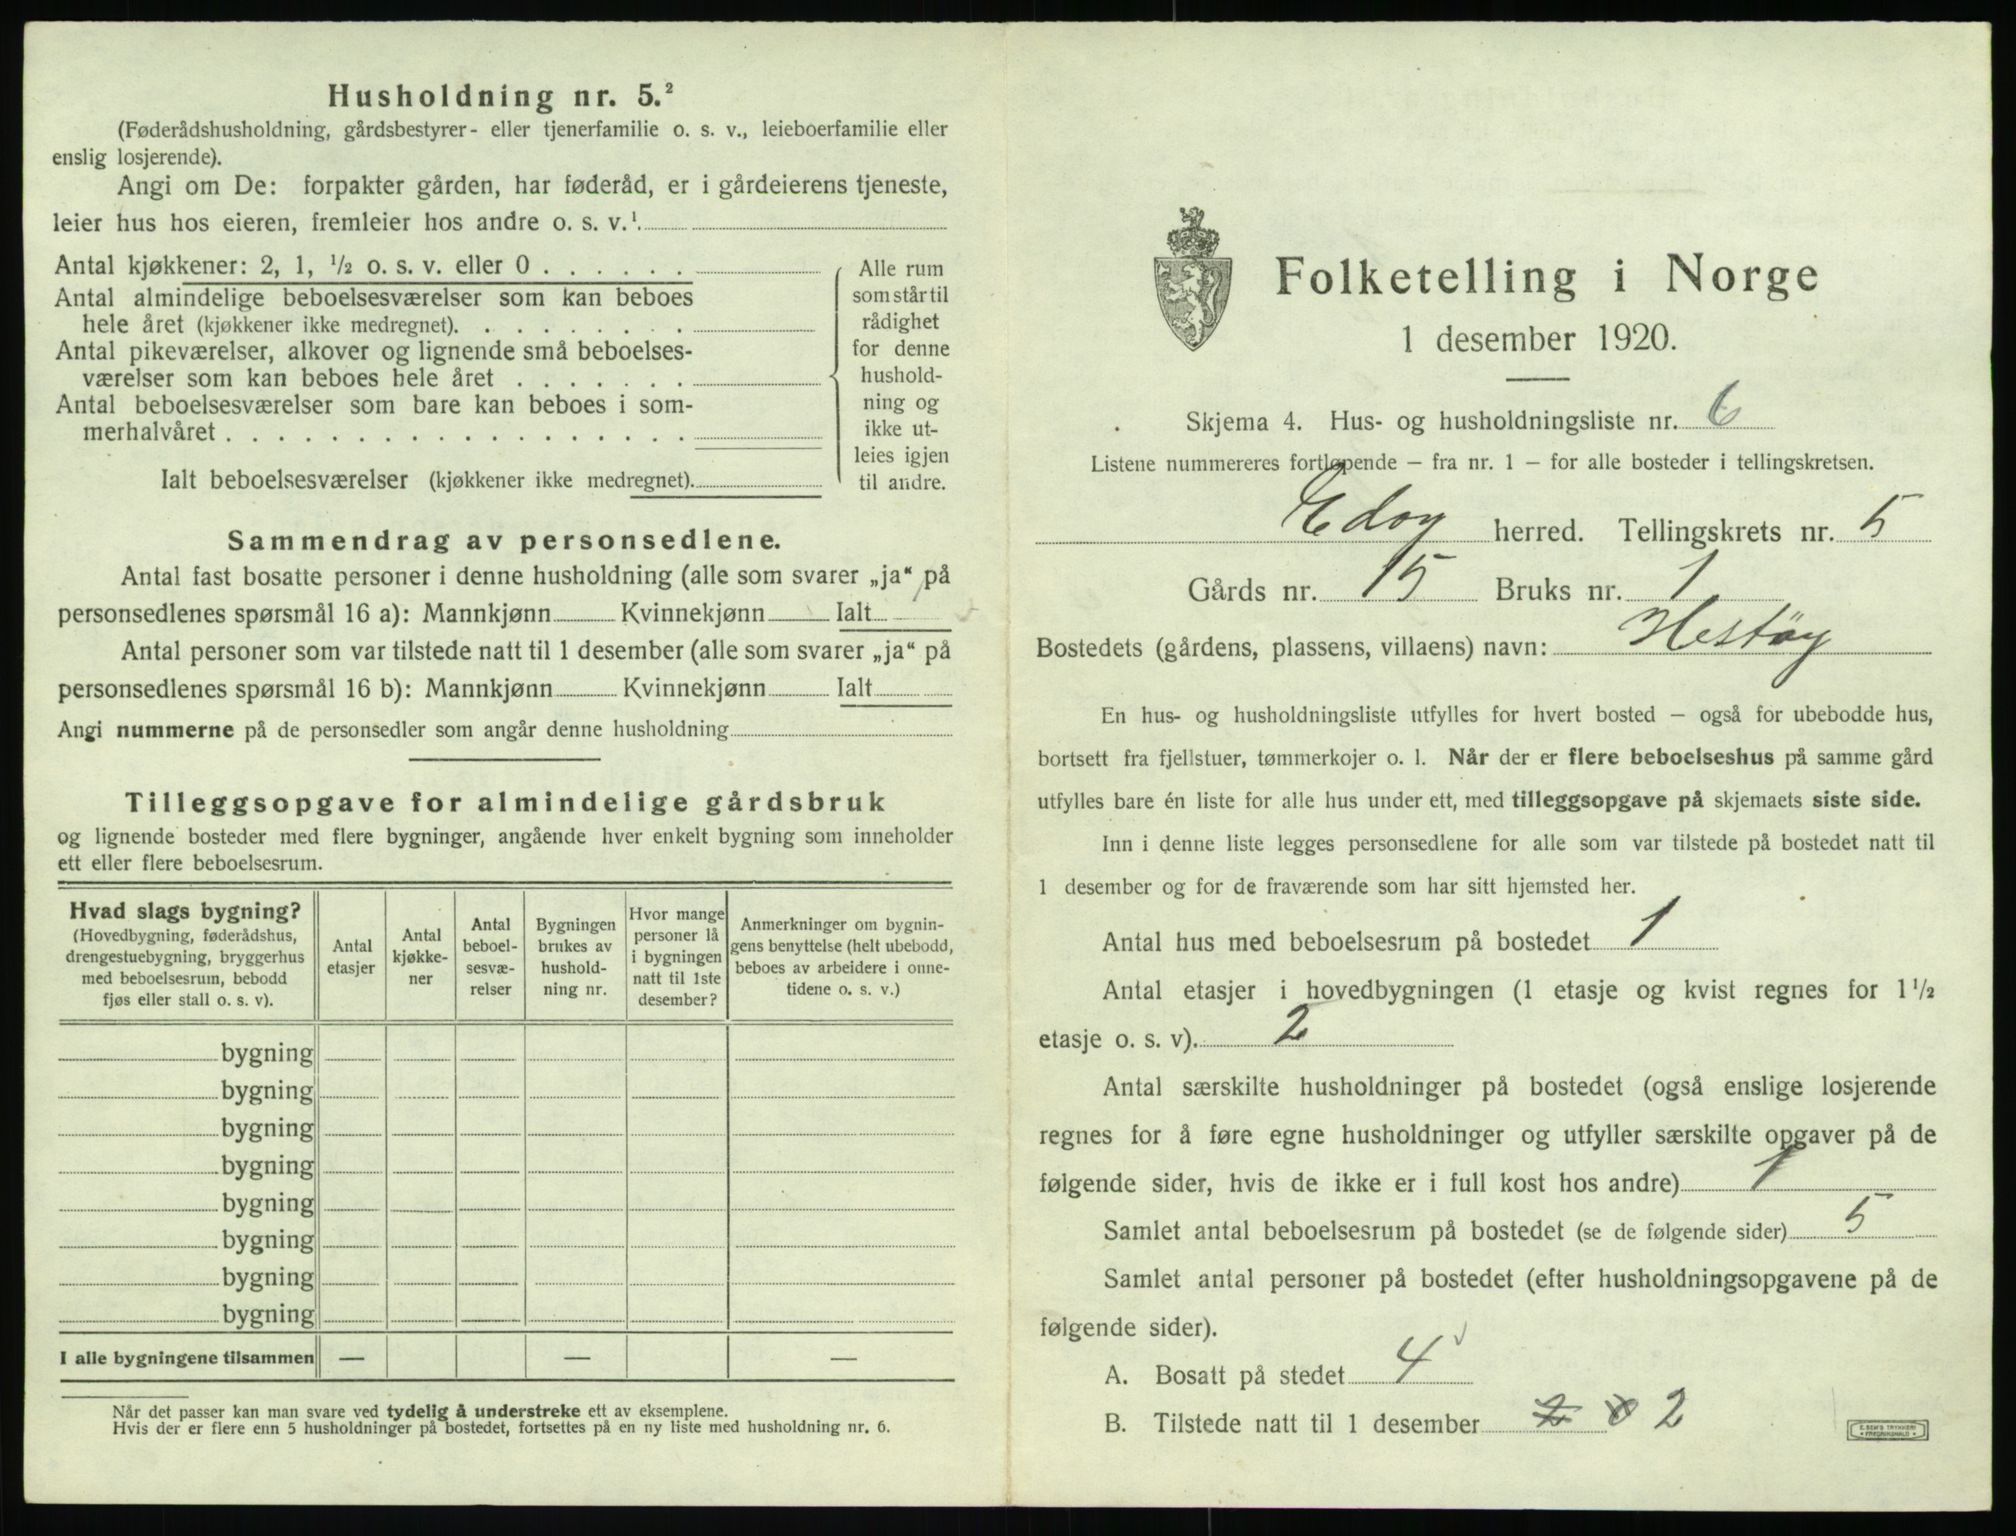 Husholdning nr. 5.²
(Føderådshusholdning, gårdsbestyrer- eller tjenerfamilie o. s. v., leieboerfamilie eller
enslig losjerende).
Angi om De: forpakter gården, har føderåd, er i gårdeierens tjeneste,
leier hus hos eieren, fremleier hos andre o. s. v.¹.
Antal kjøkkener: 2, 1, ½ o. s. v. eller 0 . . . . . .
Antal almindelige beboelsesværelser som kan beboes
hele året (kjøkkener ikke medregnet). . . . . . . . .
Antal pikeværelser, alkover og lignende små beboelses-
værelser som kan beboes hele året . . . . . . .
Antal beboelsesværelser som bare kan beboes i som-
merhalvåret . . . . . . . . . . . . . . . . . .
Ialt beboelsesværelser (kjøkkener ikke medregnet).
Alle rum
som står til
rådighet
for denne
hushold-
ning og
ikke ut-
leies igjen
til andre.
Sammendrag av personsedlene.
Antal fast bosatte personer i denne husholdning (alle som svarer „ja“ på
personsedlenes spørsmål 16 a): Mannkjønn Kvinnekjønn Ialt
Antal personer som var tilstede natt til 1 desember (alle som svarer „ja“ på
personsedlenes spørsmål 16 b): Mannkjønn Kvinnekjønn Ialt
Angi nummerne på de personsedler som angår denne husholdning
Tilleggsopgave for almindelige gårdsbruk
og lignende bosteder med flere bygninger, angående hver enkelt bygning som inneholder
ett eller flere beboelsesrum.
Hvad slags bygning?
(Hovedbygning, føderådshus,
drengestuebygning, bryggerhus
med beboelsesrum, bebodd
fjøs eller stall o. s. v).
Antal
etasjer
Antal
kjøkke-
ner
Antal
beboel-
sesvæ-
relser
Bygningen
brukes av
hushold-
ning nr.
Hvor mange
personer lå
i bygningen
natt til 1ste
desember?
Anmerkninger om bygnin-
gens benyttelse (helt ubebodd,
beboes av arbeidere i onne-
tidene o. s. v.)
bygning
bygning
bygning
bygning
bygning
bygning
bygning
bygning
I alle bygningene tilsammen — — —
Når det passer kan man svare ved tydelig å understreke ett av eksemplene.
Hvis der er flere enn 5 husholdninger på bostedet, fortsettes på en ny liste med husholdning nr. 6.
Folketelling i Norge
1 desember 1920.
Skjema 4. Hus- og husholdningsliste nr. 6
Listene nummereres fortløpende — fra nr. 1 — for alle bosteder i tellingskretsen.
Edøy herred. Tellingskrets nr. 5
Gårds nr. 15 Bruks nr. 1
Bostedets (gårdens, plassens, villaens) navn: Hestøy
En hus- og husholdningsliste utfylles for hvert bosted — også for ubebodde hus,
bortsett fra fjellstuer, tømmerkojer o. l. Når der er flere beboelseshus på samme gård
utfylles bare én liste for alle hus under ett, med tilleggsopgave på skjemaets siste side.
Inn i denne liste legges personsedlene for alle som var tilstede på bostedet natt til
1 desember og for de fraværende som har sitt hjemsted her.
Antal hus med beboelsesrum på bostedet 1
Antal etasjer i hovedbygningen (1 etasje og kvist regnes for 1½
etasje o. s. v). 2
Antal særskilte husholdninger på bostedet (også enslige losjerende
regnes for å føre egne husholdninger og utfyller særskilte opgaver på de
følgende sider, hvis de ikke er i full kost hos andre) 1
Samlet antal beboelsesrum på bostedet (se de følgende sider) 5
Samlet antal personer på bostedet (efter husholdningsopgavene på de
følgende sider).
A. Bosatt på stedet 4 √
B. Tilstede natt til 1 desember 2 2